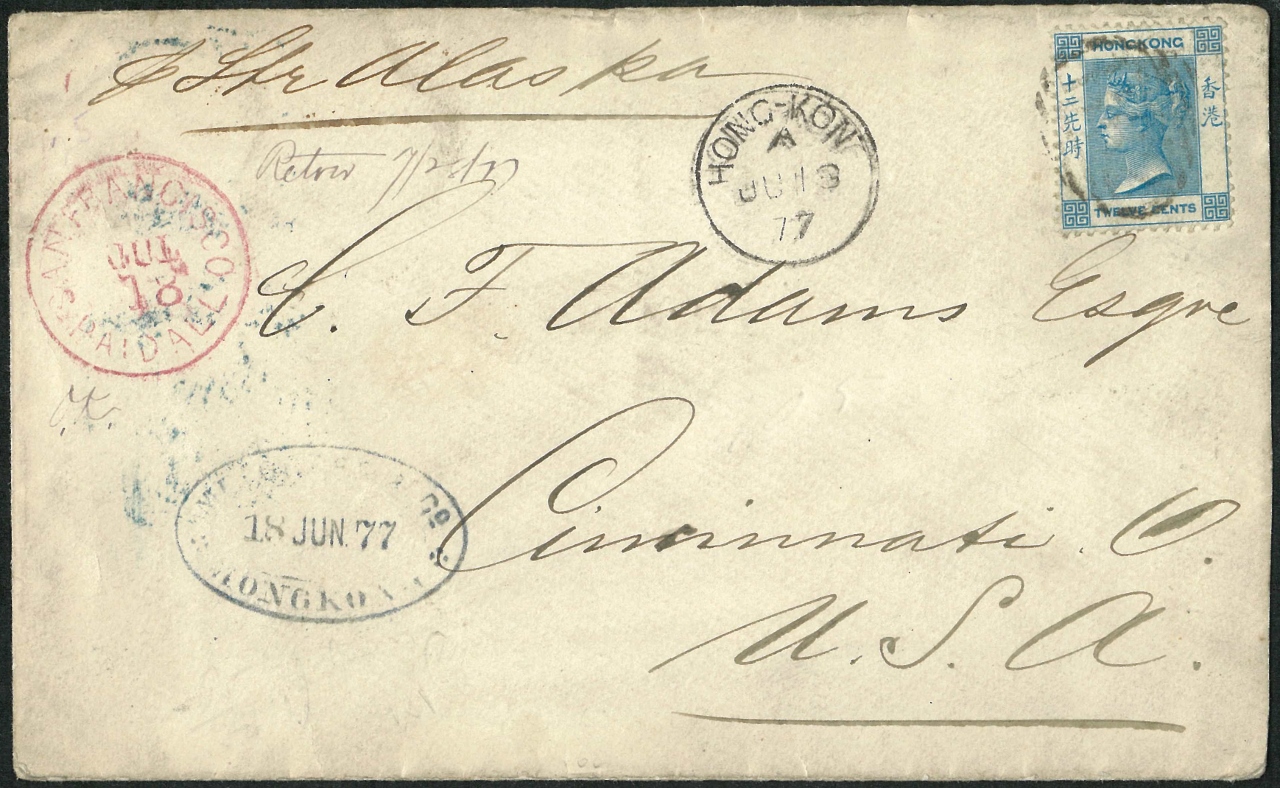 Str Alaska
HONGKONG
十二先時
香港
TWELVE CENTS
HONG-KON
A
JU 18
77
SAN FRANCISCO
JUL
18
PAID ALL
C. F. Adams Esqre
Cincinnati. O.
U. S. A.
Co.
18 JUN. 77
HONGKON